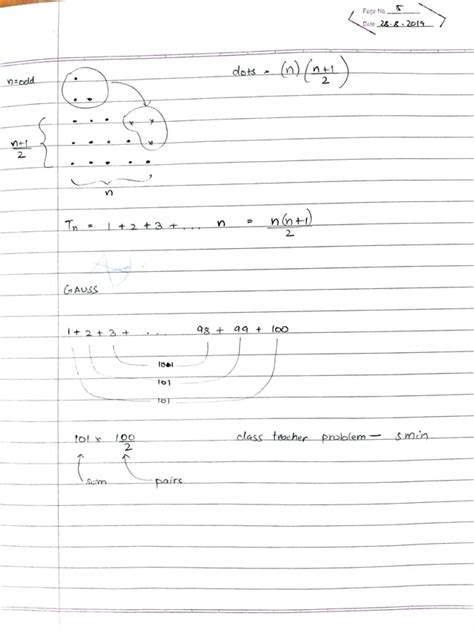 Page No. 5
Date 28.8.2019
n=odd
dots = (n) (n+1/2)
n+1/2
x x
x
n
Tn = 1 + 2 + 3 + .... n = n(n+1)/2
GAUSS
1 + 2 + 3 + .... 98 + 99 + 100
101
101
101
101 x 100/2
class teacher problem — 5 min
sum
pairs